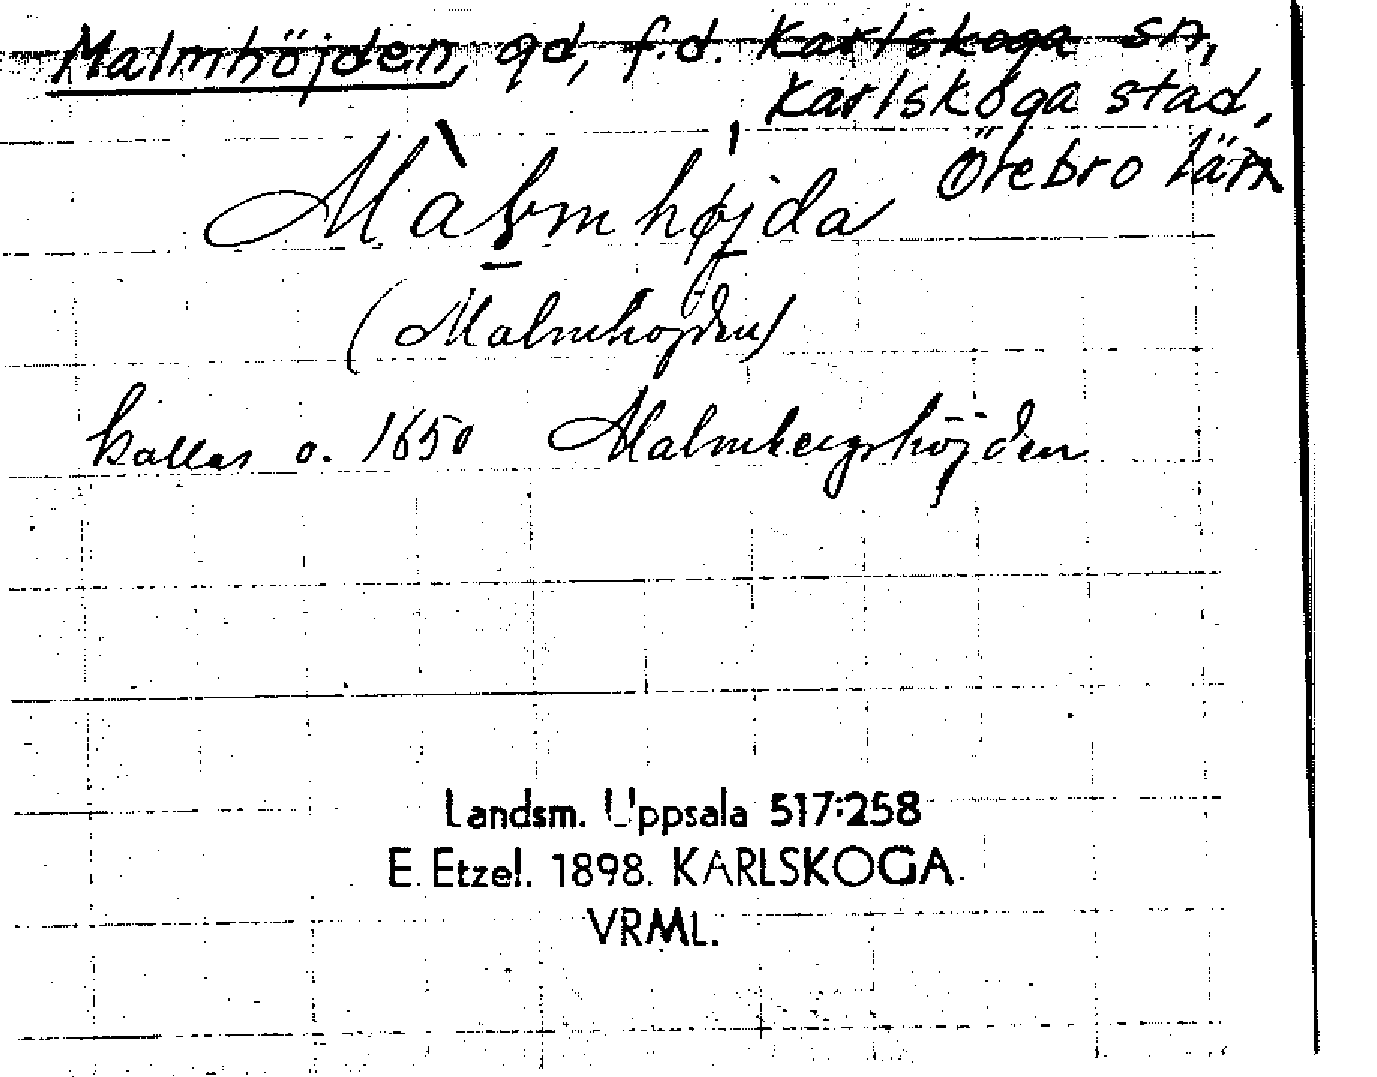 Malmhöjden, gd, f.d. Karlskoga sn,
Karlskoga stad,
Örebro län
Màlmhøjda
(Malmhöjden)
kallas o. 1650 Malmbergshöjden
Landsm. Uppsala 517:258
E. Etzel. 1898. KARLSKOGA.
VRML.